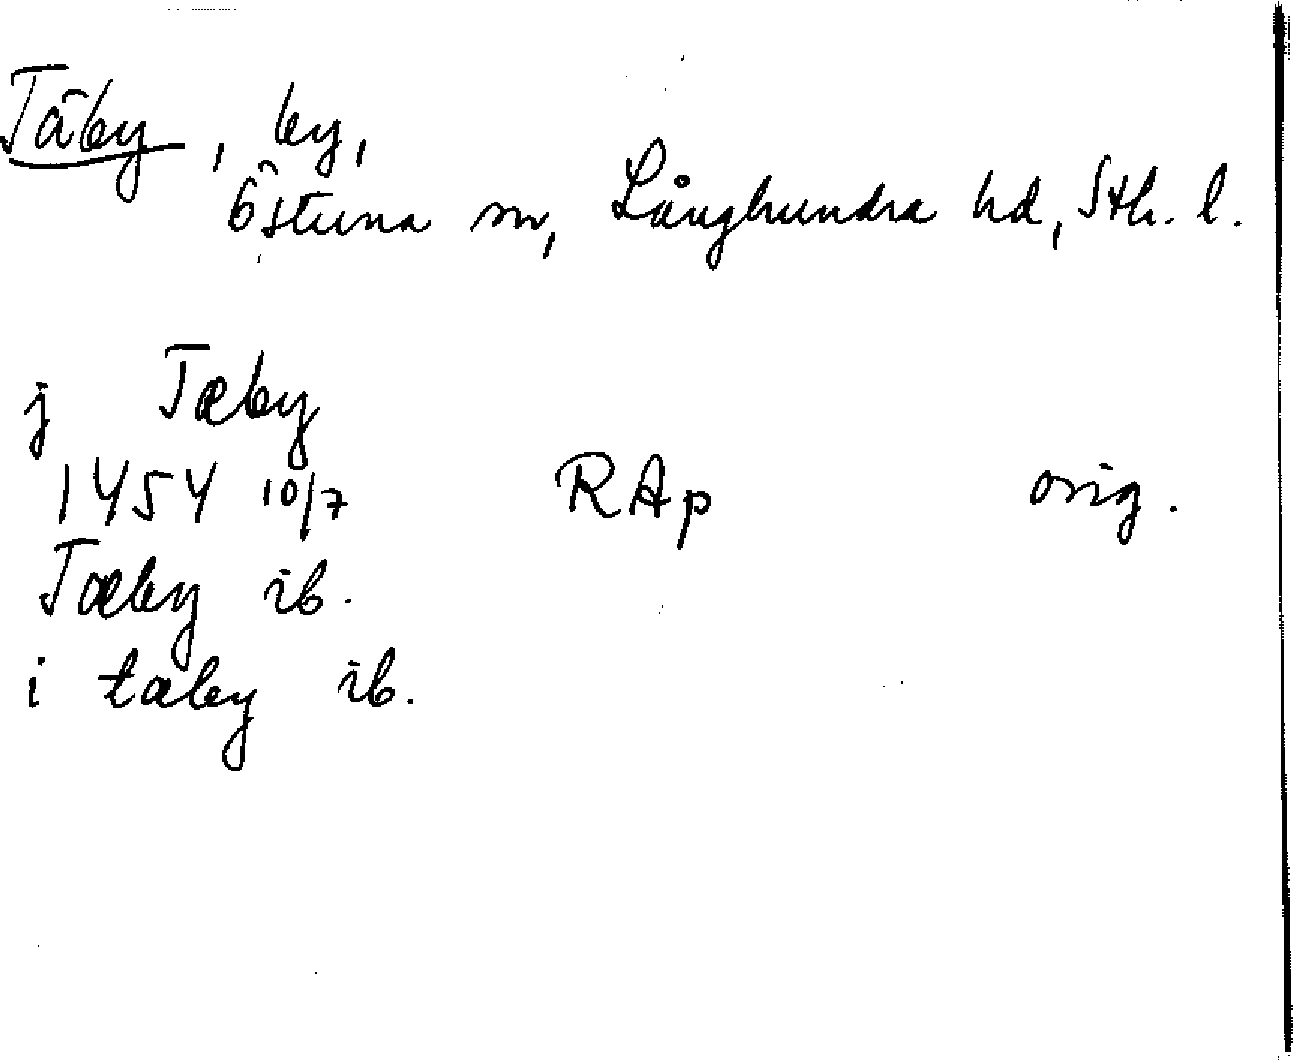 Täby, by,
Östuna sn, Långhundra hd, Sth. l.
j Tæby
1454 10/7 RAp orig.
Tæby ib.
i tæby ib.